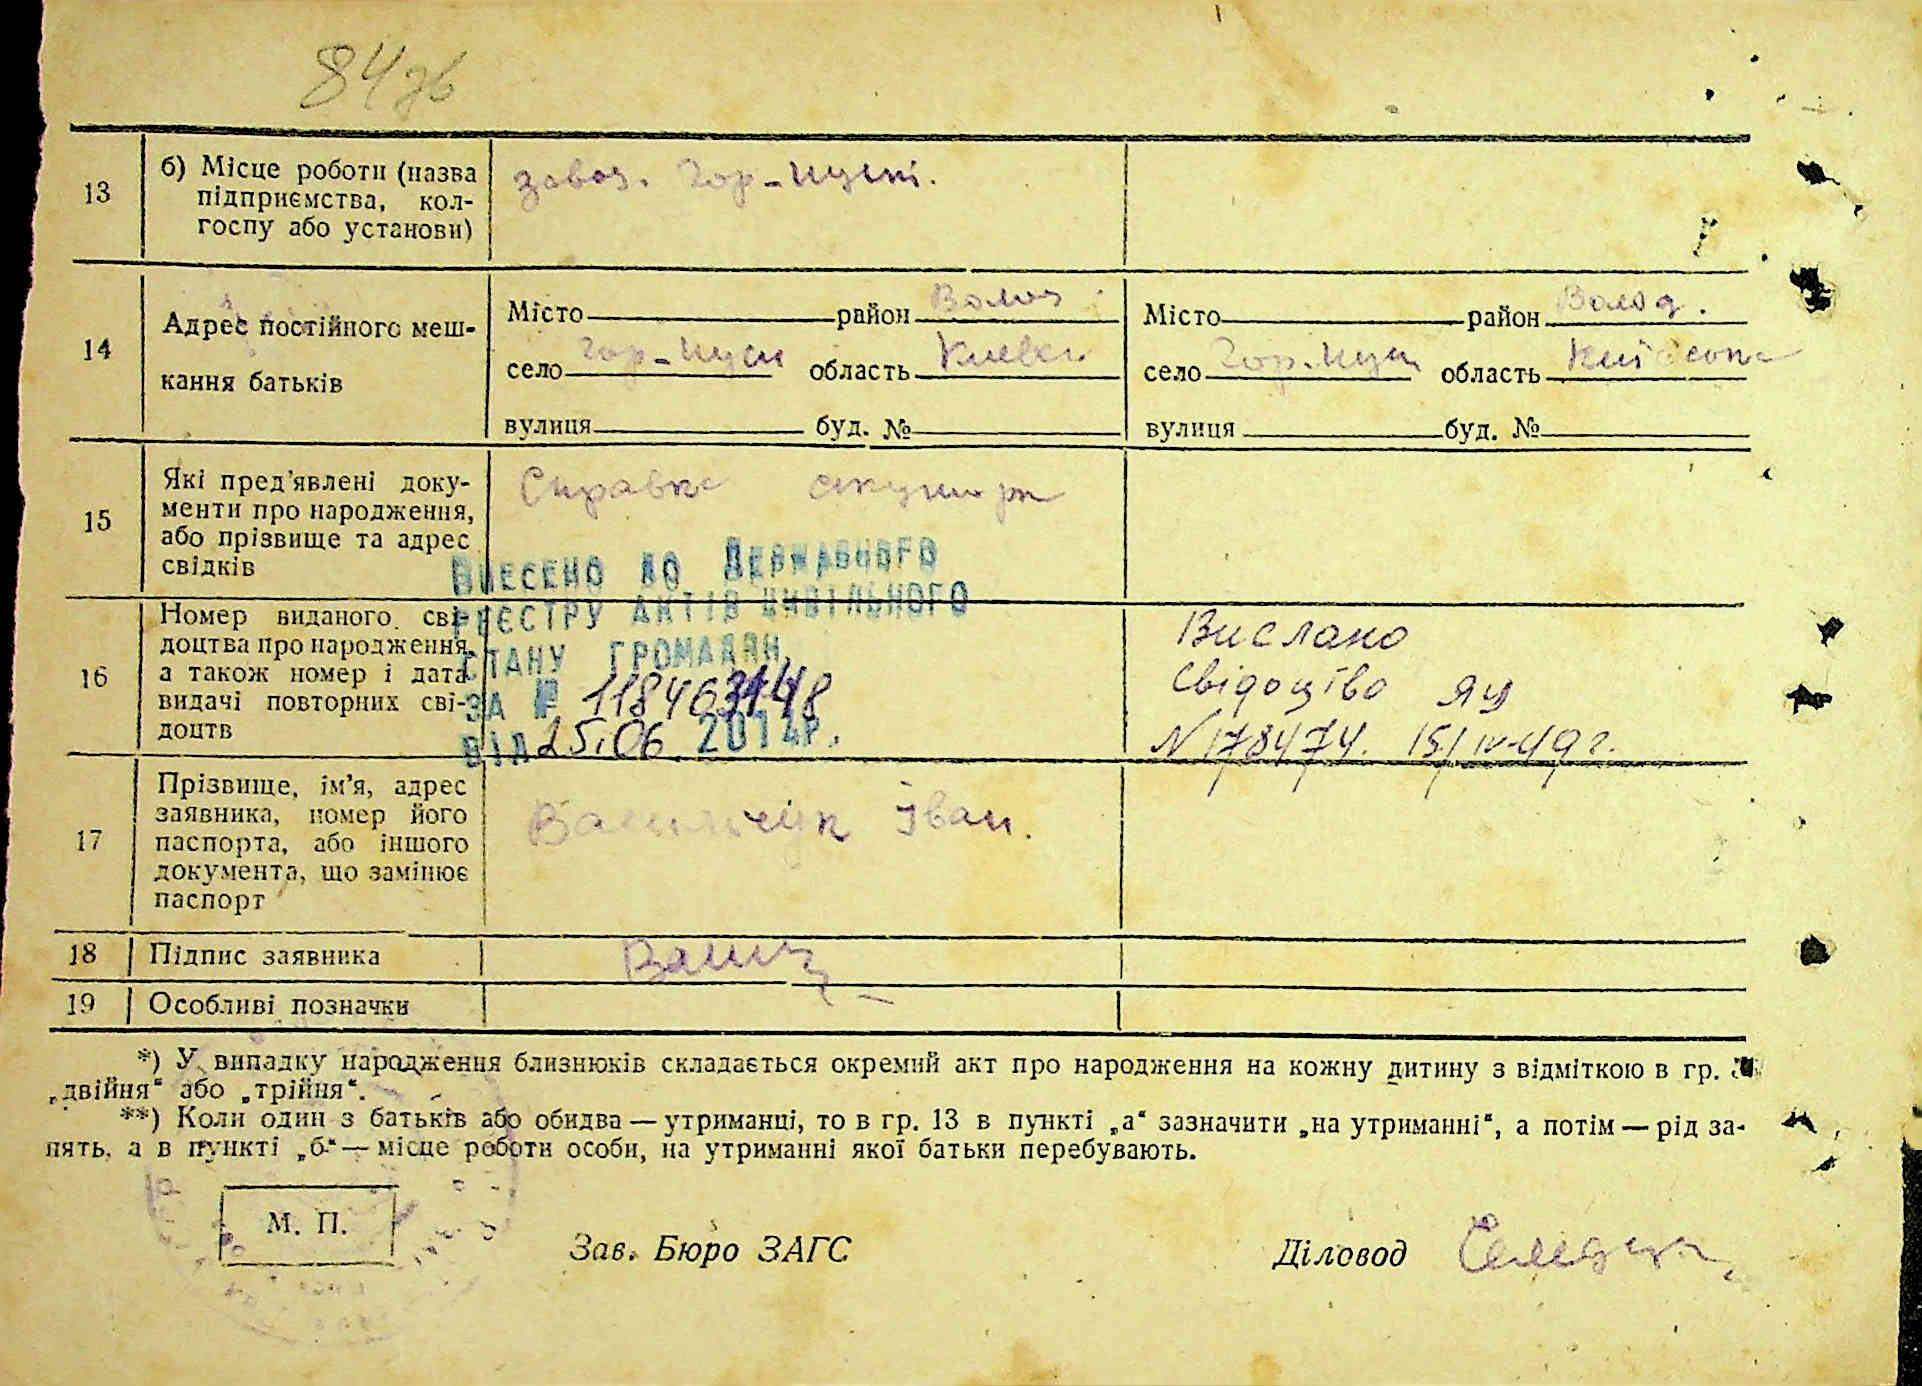 84
13
б) Місце роботи (назва
підприємства, кол-
госпу або установи)
завод. Гор-Пущі.
14
Адрес постійного меш-
кання батьків
Місто район Волод
село Гор-Пущі область Київськ
вулиця буд. №
Місто район Волод.
село Гор-Пущ область Київськ
вулиця буд. №
15
Які пред'явлені доку-
менти про народження,
або прізвище та адрес
свідків
Справка акушорк
ВНЕСЕНО ДО ДЕРЖАВНОГО
РЕЄСТРУ АКТІВ ЦИВІЛЬНОГО
СТАНУ ГРОМАДЯН
ЗА №
ВІД 25.06 2014р.
16
Номер виданого сві-
доцтва про народження,
а також номер і дата
видачі повторних сві-
доцтв
Вислано
свідоцтво ЯЦ
N 178474. 15/IV-49г.
17
Прізвище, ім'я, адрес
заявника, номер його
паспорта, або іншого
документа, що замінює
паспорт
Васильчук Іван.
18
Підпис заявника
19
Особливі позначки
*) У випадку народження близнюків складається окремий акт про народження на кожну дитину з відміткою в гр.
„двійня“ або „трійня“.
**) Коли один з батьків або обидва — утриманці, то в гр. 13 в пункті „а“ зазначити „на утриманні“, а потім — рід за-
нять, а в пункті „б“ — місце роботи особи, на утриманні якої батьки перебувають.
М. П.
Зав. Бюро ЗАГС
Діловод